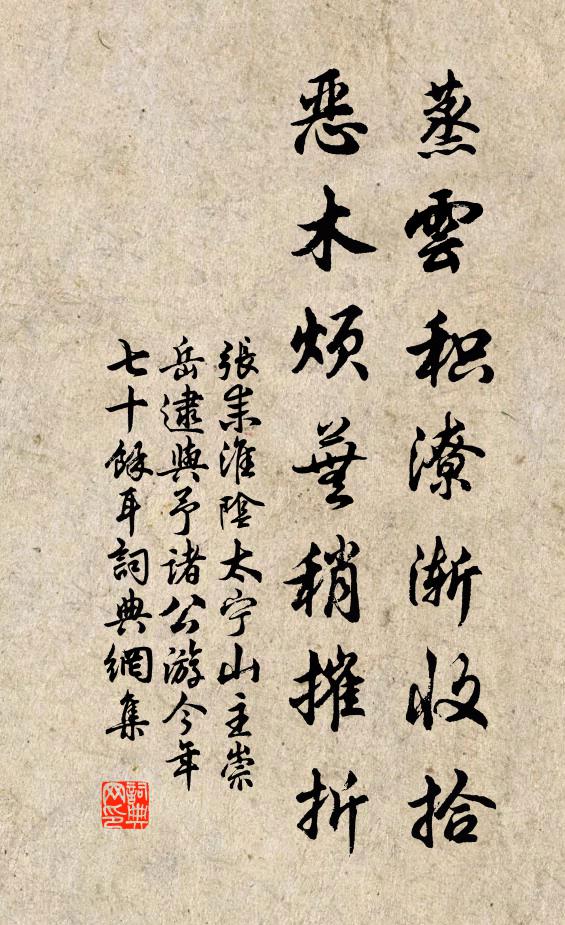 蒸雲积潦漸收拾
恶木煩蕪稍摧折
張耒淮陰太宁山主崇
岳逮與予諸公游今年
七十餘耳詞典網集
詞典网印